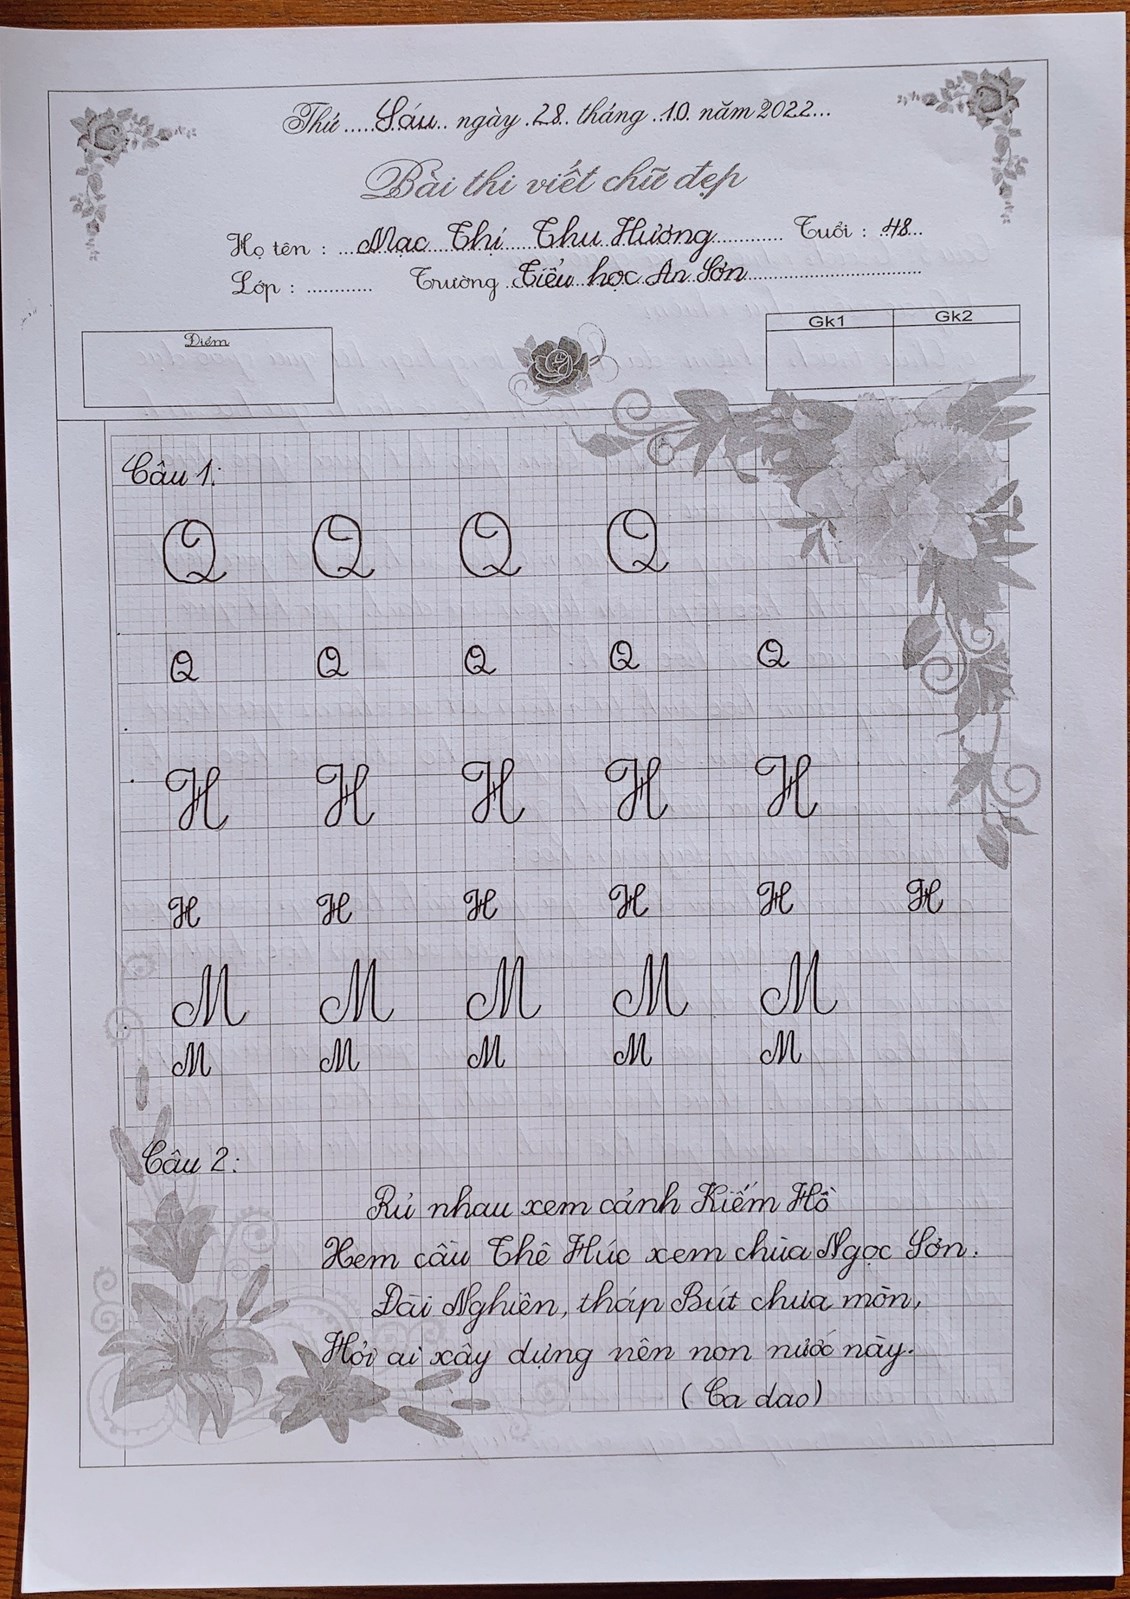 Thứ.....Sáu.. ngày .28. tháng ..10. năm 2022...
Bài thi viết chữ đẹp
Họ tên : ...Mạc Thị Thu Hương............ Tuổi : 48...
Lớp : ............ Trường .Tiểu học An Sơn................................
Điểm
Gk1 Gk2
Câu 1:
Q Q Q Q
Q Q Q Q Q
H H H H H
H H H H H H
M M M M M
M M M M M
Câu 2:
Rủ nhau xem cảnh Kiếm Hồ
Xem cầu Thê Húc xem chùa Ngọc Sơn.
Đài Nghiên, tháp Bút chưa mòn,
Hỏi ai xây dựng nên non nước này.
(Ca dao)